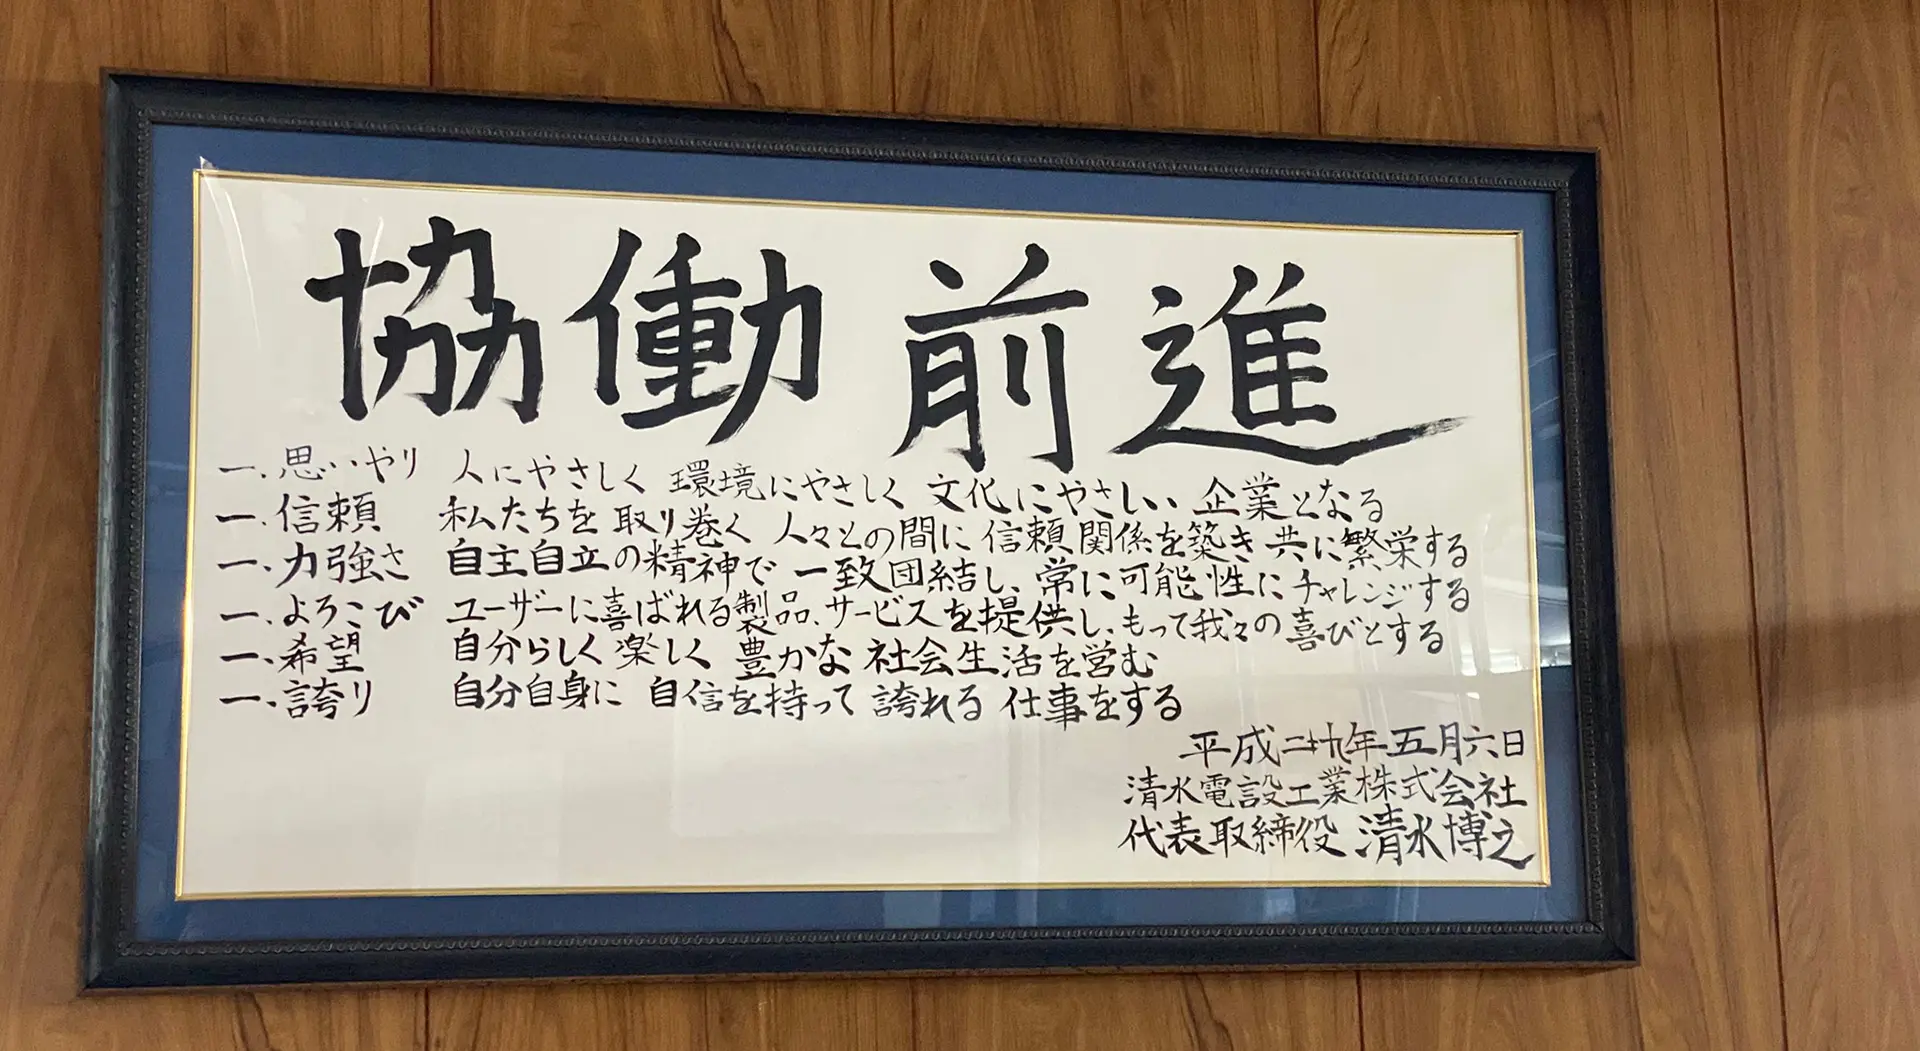 協働前進
一、思いやり 人にやさしく 環境にやさしく 文化にやさしい 企業となる
一、信頼 私たちを取り巻く 人々との間に 信頼関係を築き 共に繁栄する
一、力強さ 自主自立の精神で 一致団結し、常に可能性にチャレンジする
一、よろこび ユーザーに喜ばれる製品、サービスを提供し、もって我々の喜びとする
一、希望 自分らしく 楽しく 豊かな 社会生活を営む
一、誇り 自分自身に 自信を持って 誇れる 仕事をする
平成二十九年五月六日
清水電設工業株式会社
代表取締役 清水博之